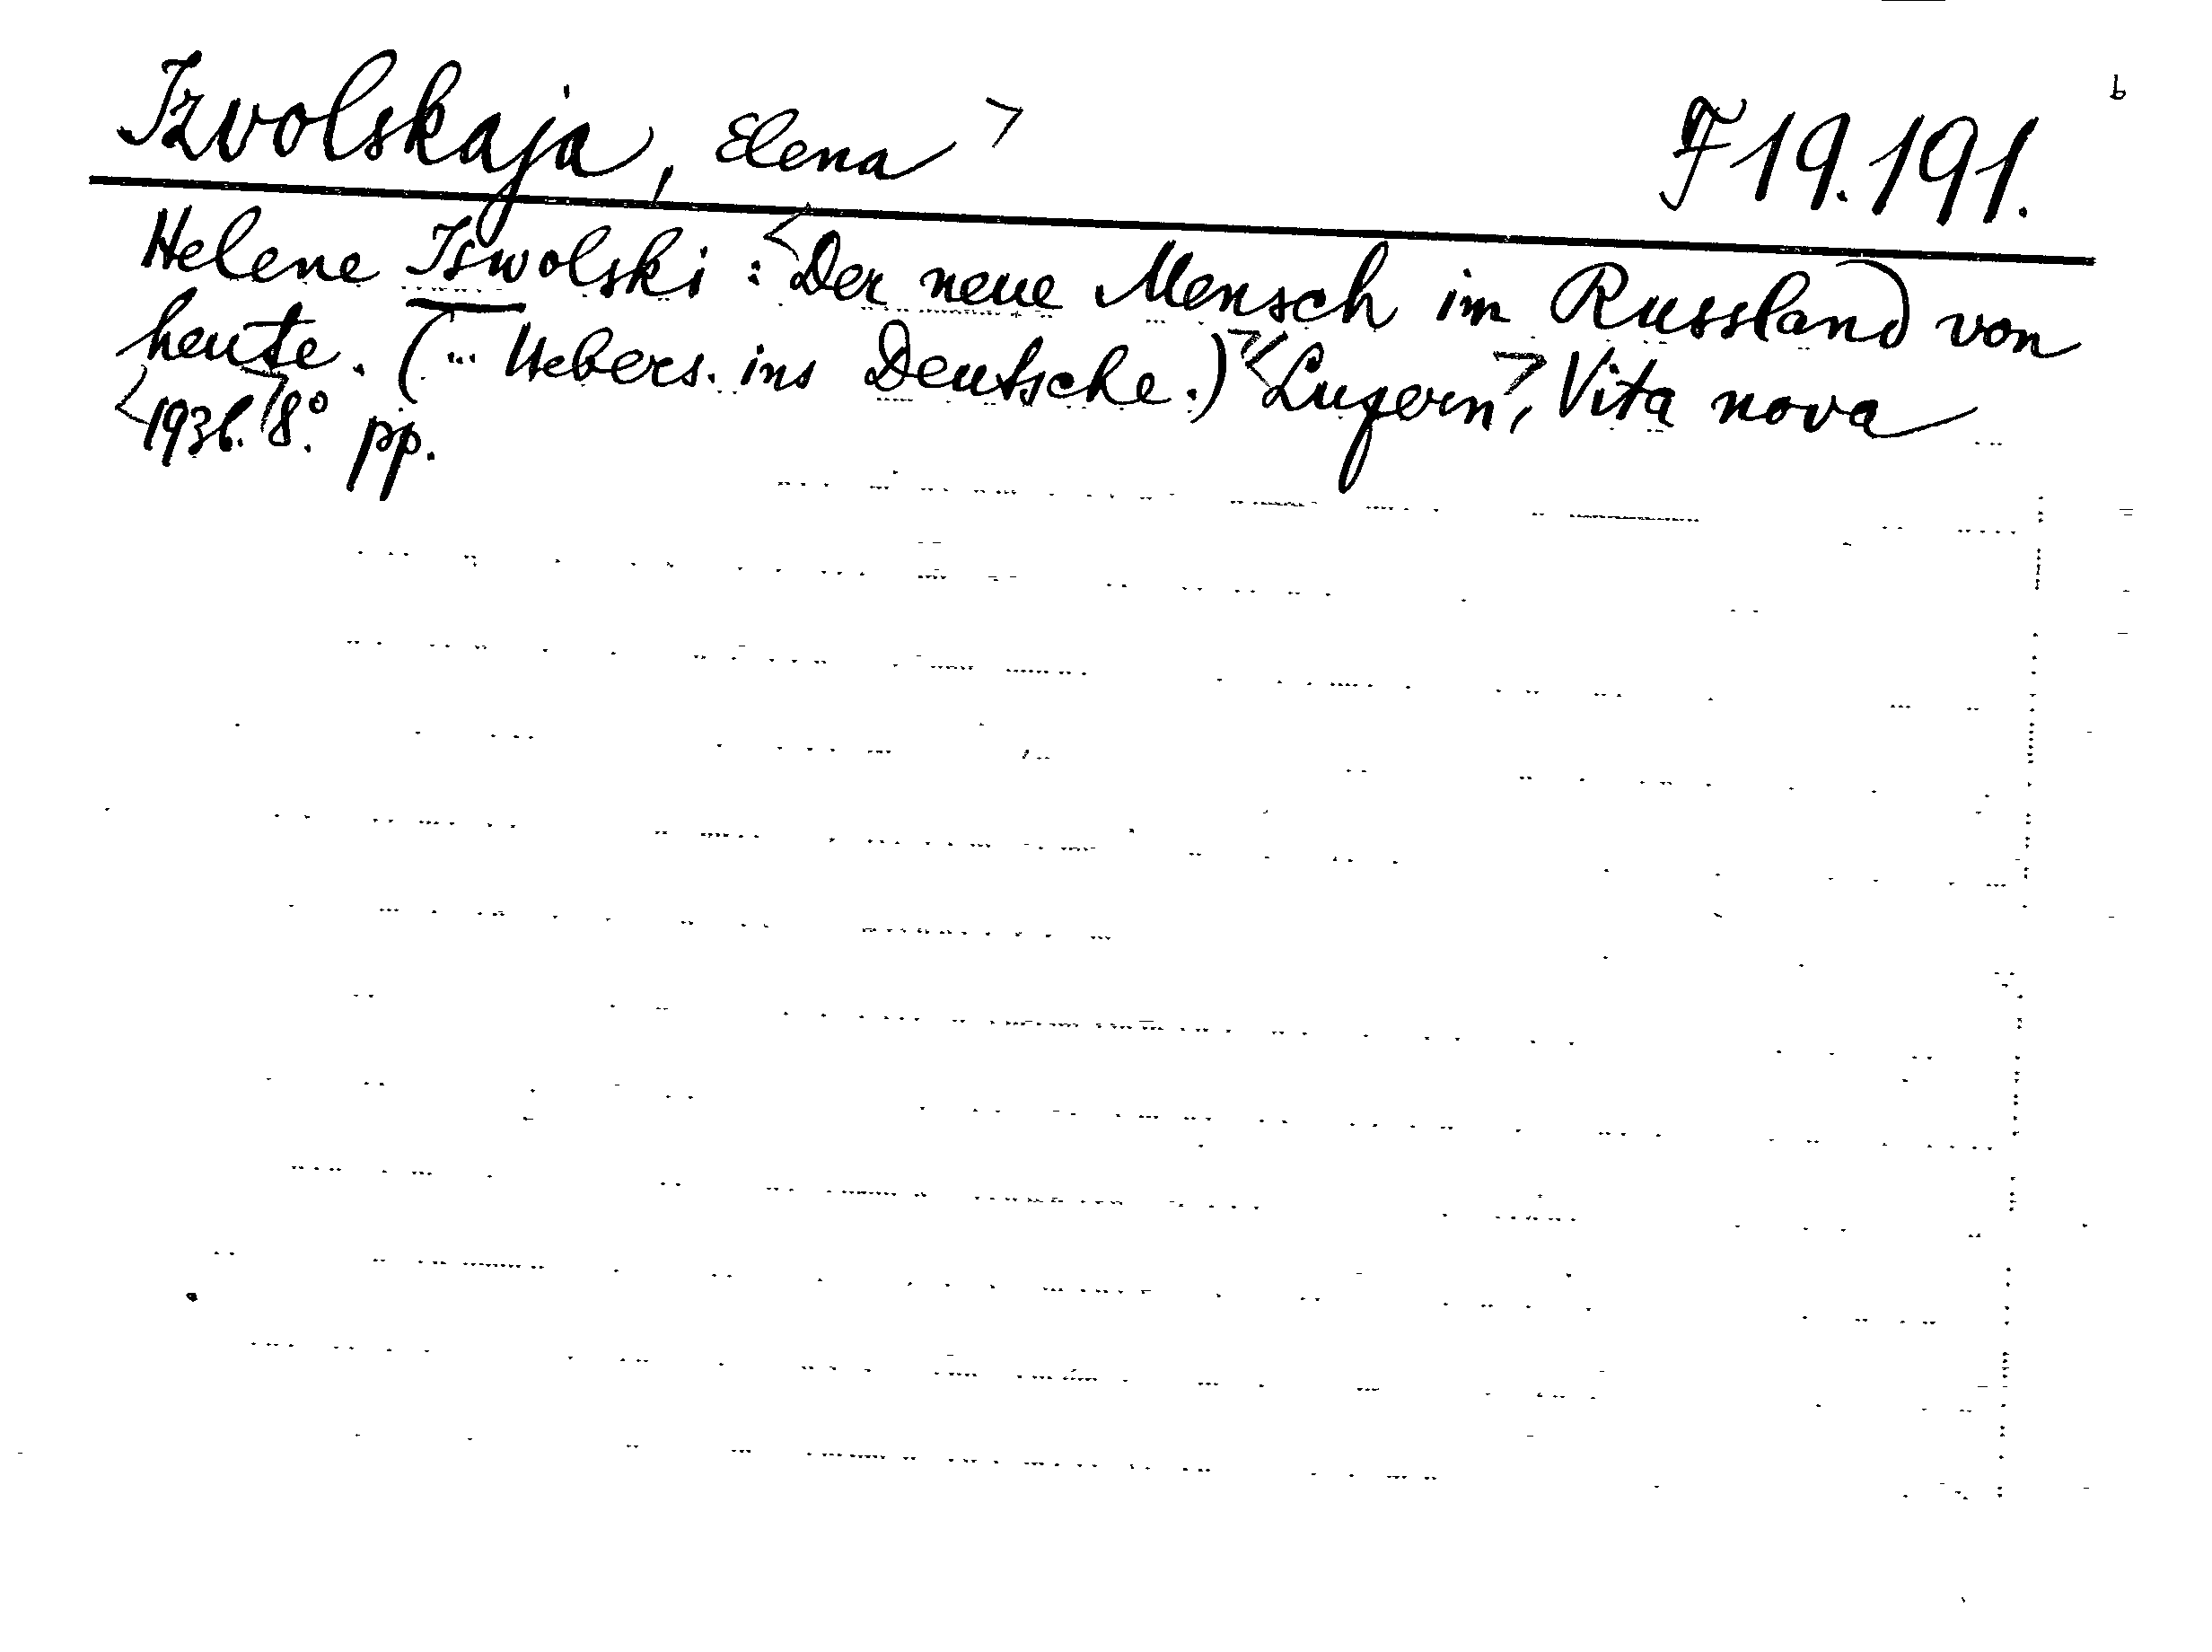 Izvolskaja, Elena > F 19.191. b
Helene Iswolski : <Der neue Mensch im Russland von
heute. (... Uebers. ins Deutsche.)> <Luzern>, Vita nova
<1936.> 8.° pp.